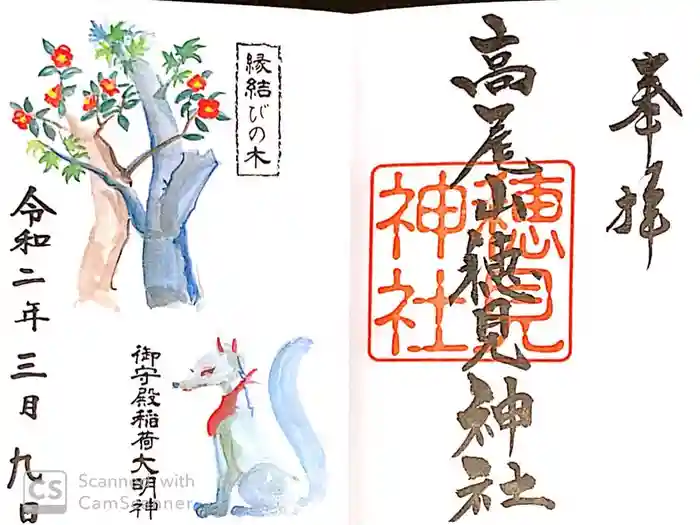 奉拝
高尾山穂見神社
穂見
神社
縁結びの木
御守殿稲荷大明神
令和二年三月九日
CS
Scanned with
CamScanner